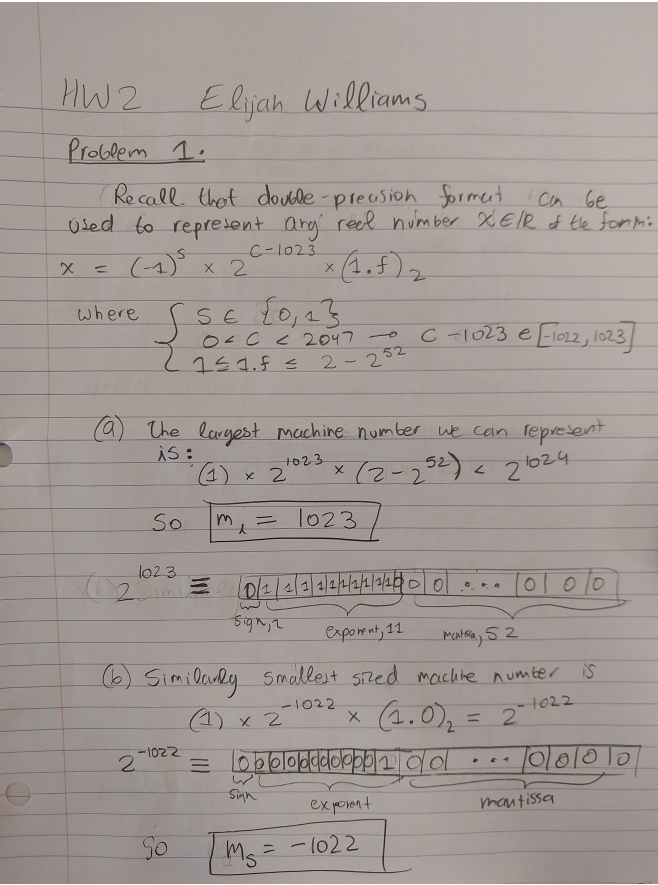 HW2 Elijah Williams
Problem 1.
Recall that double-precision format can be
used to represent any real number x∈ℝ of the form:
x = (-1)^S × 2^(C-1023) × (1.f)_2
where { S ∈ {0,1}
0 < C < 2047 → C -1023 ∈ [-1022, 1023]
1 ≤ 1.f ≤ 2 - 2^52
(a) The largest machine number we can represent
is:
(1) × 2^1023 × (2-2^52) < 2^1024
So m_l = 1023
2^1023 ≡ 0 1 1 1 1 1 1 1 1 1 1 0 0 0 ... 0 0 0
sign, 1 exponent, 11 mantissa, 52
(b) Similarly smallest sized machine number is
(1) × 2^-1022 × (1.0)_2 = 2^-1022
2^-1022 ≡ 0 0 0 0 0 0 0 0 0 0 0 1 0 0 ... 0 0 0 0
sign exponent mantissa
So m_s = -1022